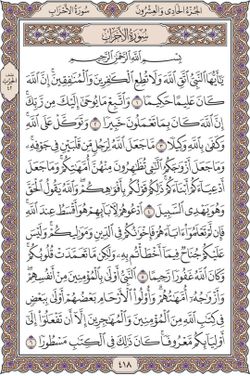 الجُزْءُ الحَادِي وَالعِشْرُونَ سُورَةُ الأَحْزَابِ
سُورَةُ الأَحْزَابِ
بِسْمِ ٱللَّهِ ٱلرَّحْمَٰنِ ٱلرَّحِيمِ
يَٰٓأَيُّهَا ٱلنَّبِيُّ ٱتَّقِ ٱللَّهَ وَلَا تُطِعِ ٱلْكَٰفِرِينَ وَٱلْمُنَٰفِقِينَۗ إِنَّ ٱللَّهَ
كَانَ عَلِيمًا حَكِيمًا ١ وَٱتَّبِعْ مَا يُوحَىٰٓ إِلَيْكَ مِن رَّبِّكَۚ
إِنَّ ٱللَّهَ كَانَ بِمَا تَعْمَلُونَ خَبِيرًا ٢ وَتَوَكَّلْ عَلَى ٱللَّهِۚ
وَكَفَىٰ بِٱللَّهِ وَكِيلًا ٣ مَّا جَعَلَ ٱللَّهُ لِرَجُلٍ مِّن قَلْبَيْنِ فِي جَوْفِهِۦۚ
وَمَا جَعَلَ أَزْوَٰجَكُمُ ٱلَّٰٓـِٔي تُظَٰهِرُونَ مِنْهُنَّ أُمَّهَٰتِكُمْۚ وَمَا جَعَلَ
أَدْعِيَآءَكُمْ أَبْنَآءَكُمْۚ ذَٰلِكُمْ قَوْلُكُم بِأَفْوَٰهِكُمْۖ وَٱللَّهُ يَقُولُ ٱلْحَقَّ
وَهُوَ يَهْدِي ٱلسَّبِيلَ ٤ ٱدْعُوهُمْ لِأٓبَآئِهِمْ هُوَ أَقْسَطُ عِندَ ٱللَّهِۚ
فَإِن لَّمْ تَعْلَمُوٓا۟ ءَابَآءَهُمْ فَإِخْوَٰنُكُمْ فِي ٱلدِّينِ وَمَوَٰلِيكُمْۚ وَلَيْسَ
عَلَيْكُمْ جُنَاحٌ فِيمَآ أَخْطَأْتُم بِهِۦ وَلَٰكِن مَّا تَعَمَّدَتْ قُلُوبُكُمْۚ
وَكَانَ ٱللَّهُ غَفُورًا رَّحِيمًا ٥ ٱلنَّبِيُّ أَوْلَىٰ بِٱلْمُؤْمِنِينَ مِنْ أَنفُسِهِمْۖ
وَأَزْوَٰجُهُۥٓ أُمَّهَٰتُهُمْۗ وَأُو۟لُوا۟ ٱلْأَرْحَامِ بَعْضُهُمْ أَوْلَىٰ بِبَعْضٍ
فِي كِتَٰبِ ٱللَّهِ مِنَ ٱلْمُؤْمِنِينَ وَٱلْمُهَٰجِرِينَ إِلَّآ أَن تَفْعَلُوٓا۟ إِلَىٰٓ
أَوْلِيَآئِكُم مَّعْرُوفًاۚ كَانَ ذَٰلِكَ فِي ٱلْكِتَٰبِ مَسْطُورًا ٦
٤١٨